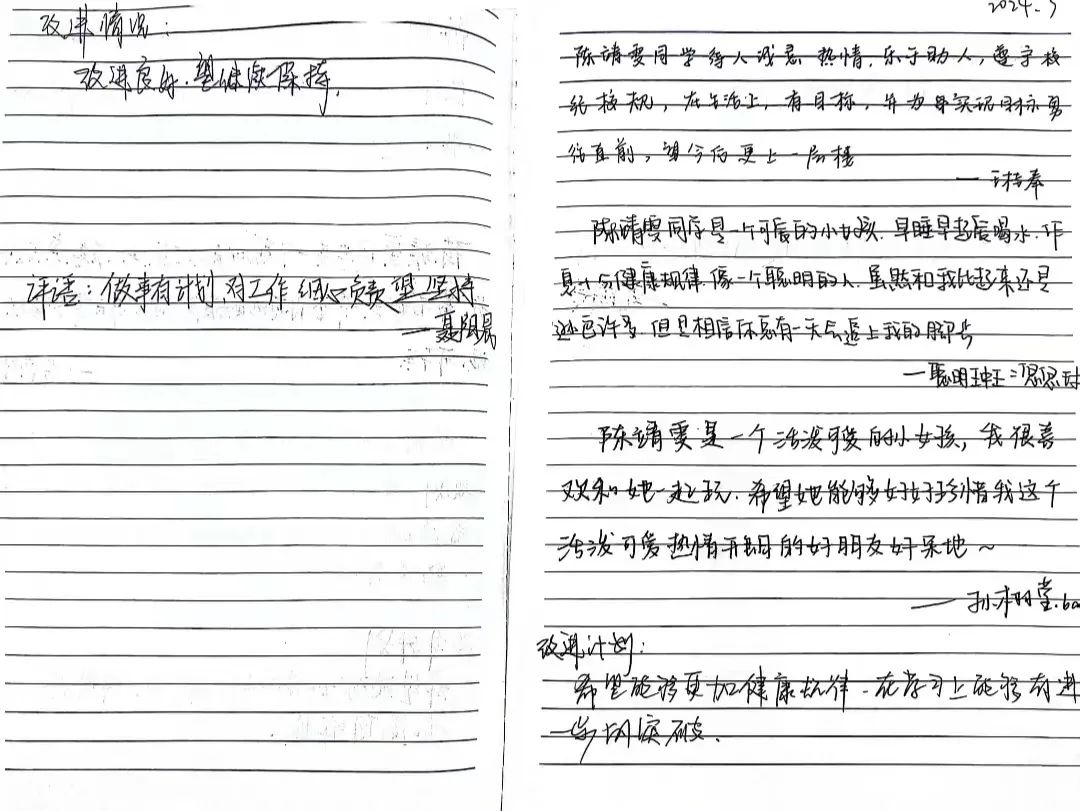 改进情况：
改进良好，望继续保持。
评语：做事有计划，对工作细心负责，望坚持
——聂阳晨
2024.
陈靖雯同学待人诚恳，热情，乐于助人，遵守校
纪校规，在生活上，有目标，并为实现目标勇
往直前，望今后更上一层楼
陈靖雯同学是一个可爱的小女孩，早睡早起爱喝水，作
息十分健康规律，像一个聪明的人，虽然和我比起来还是
逊色许多，但是相信你总有一天会追上我的脚步
陈靖雯是一个活泼可爱的小女孩，我很喜
欢和她一起玩，希望她能够好好珍惜我这个
活泼可爱热情开朗的好朋友好呆地~
改进计划：
希望能够更加健康规律，在学习上能够有进
一步的突破。